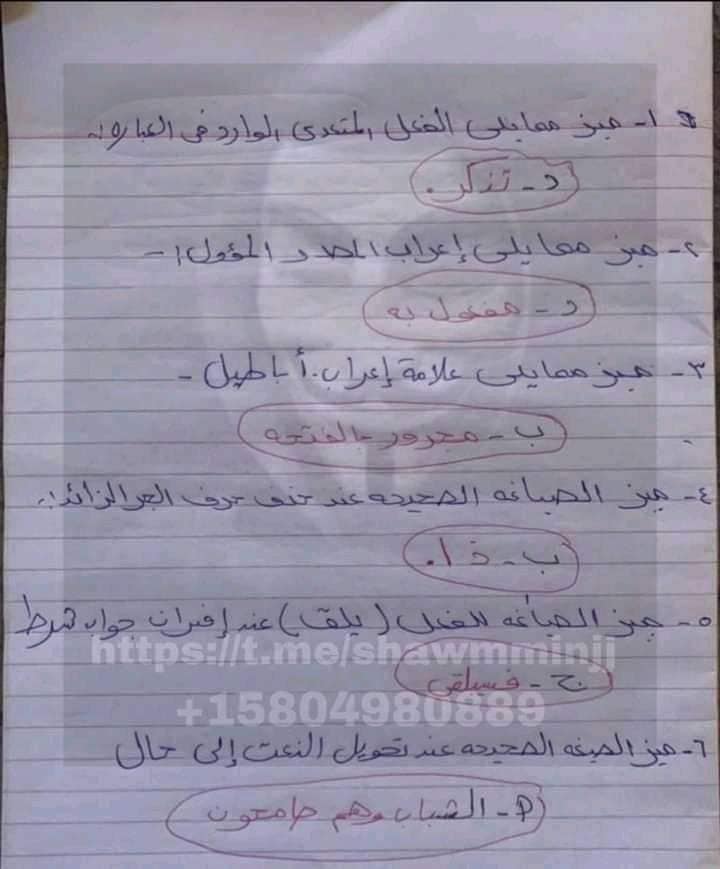 ١- ميز ممايلى الفعل المتعدى الوارد فى العبارة :-
د - تذكر .
٢- ميز ممايلى إعراب المصدر المؤول :-
د - مفعول به
٣- ميز ممايلى علامة إعراب . أباطيل -
ب - مجرور بالفتحه
٤- ميز الصياغه الصحيحه عند حذف حرف الجر الزائد :-
ب - ذا .
٥- ميز الصياغه للفعل (يلق) عند إقتران جواب شرط
https://t.me/shawmminji
ج - فسيلقى
+15804980889
٦- ميز الصيغه الصحيحه عند تحويل النعت إلى حال
P - الشباب وهم طامعون